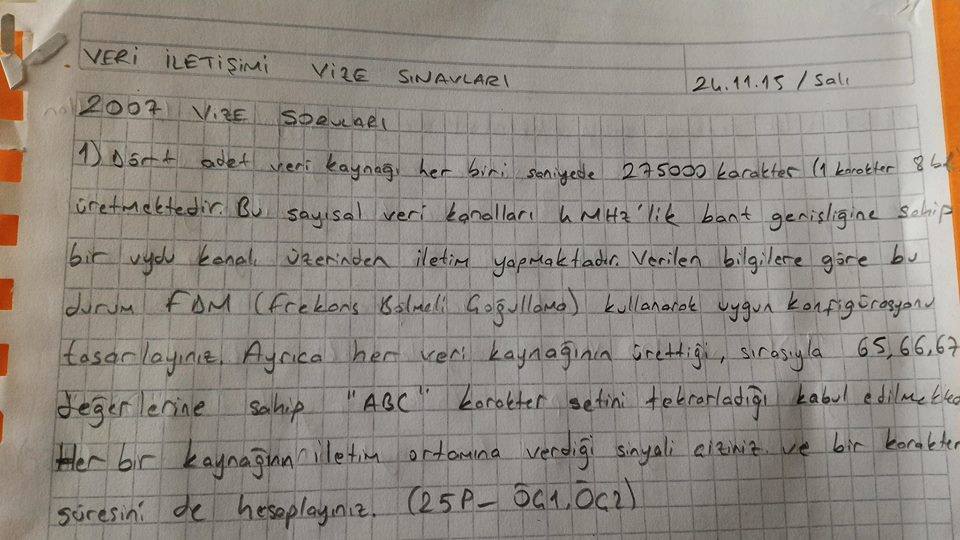 VERİ İLETİŞİMİ VİZE SINAVLARI
24.11.15 / Salı
2007 VİZE SORULARI
1) Dört adet veri kaynağı her biri saniyede 275000 karakter (1 karakter 8 bit
üretmektedir. Bu sayısal veri kanalları 4 MHz'lik bant genişliğine sahip
bir uydu kanalı üzerinden iletim yapmaktadır. Verilen bilgilere göre bu
durum FDM (Frekans Bölmeli Çoğullama) kullanarak uygun konfigürasyonu
tasarlayınız. Ayrıca her veri kaynağının ürettiği, sırasıyla 65,66,67
değerlerine sahip "ABC" karakter setini tekrarladığı kabul edilmekted
Her bir kaynağının iletim ortamına verdiği sinyali çiziniz ve bir karakter
süresini de hesaplayınız. (25P - ÖÇ1, ÖÇ2)